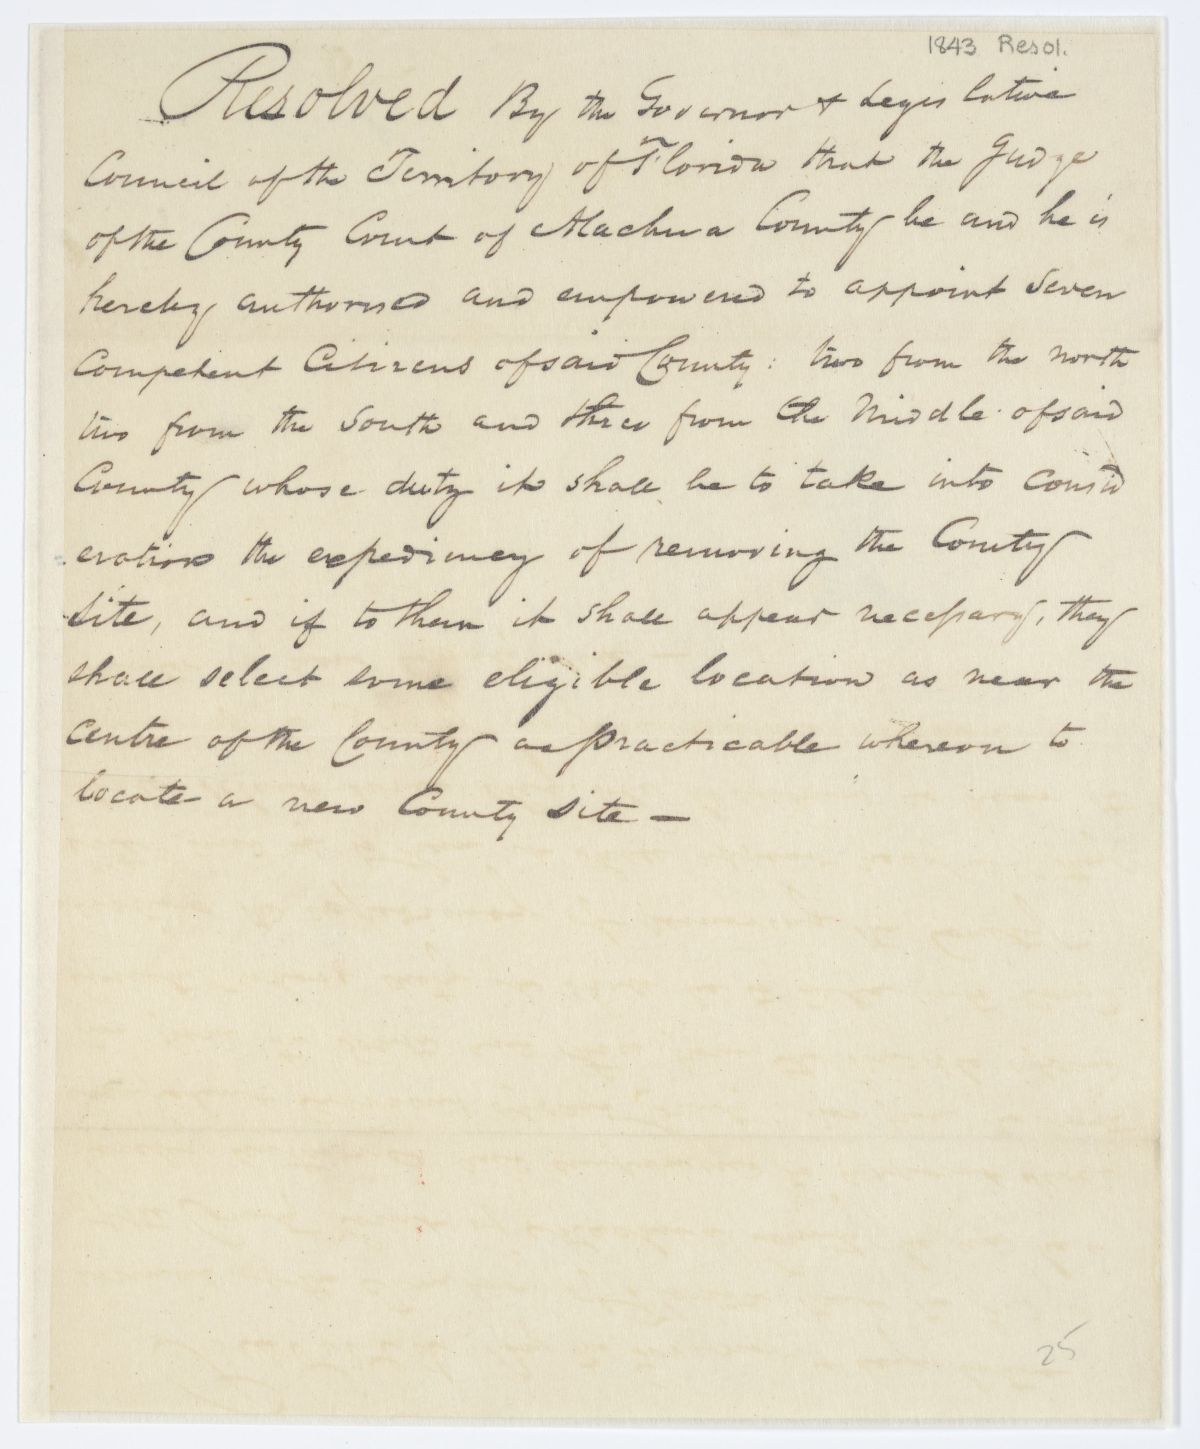 1843 Resol.
Resolved By the Governor & Legislative
Council of the Territory of Florida that the Judge
of the County Court of Alachua County be and he is
hereby authorised and empowered to appoint Seven
Competent Citizens of said County: two from the north
two from the South and three from the Middle of said
County whose duty it shall be to take into consid
eration the expediency of removing the County
Site, and if to them it shall appear necessary, they
shall select some eligible location as near the
centre of the County as practicable whereon to
locate a new County Site —
25